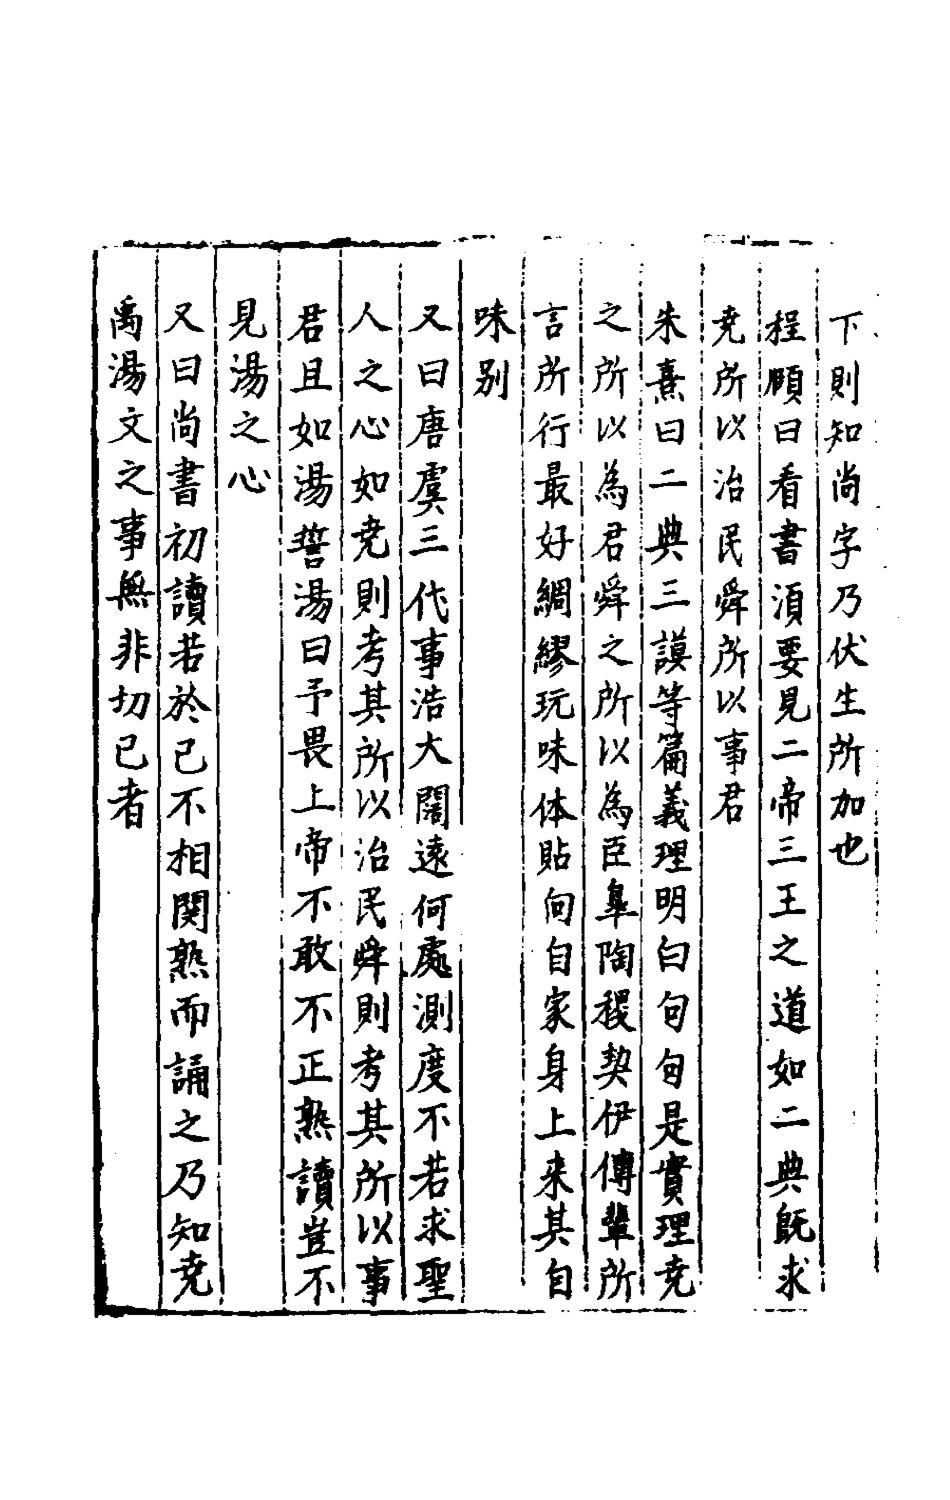 下則知尚字乃伏生所加也
程頤曰看書須要見二帝三王之道如二典既求
尭所以治民舜所以事君
朱熹曰二典三謨等篇義理明白句句是實理尭
之所以為君舜之所以為臣皐陶稷契伊傅輩所
言所行最好綢繆玩味体貼向自家身上来其自
味别
又曰唐虞三代事浩大闊遠何處測度不若求聖
人之心如尭則考其所以治民舜則考其所以事
君且如湯誓湯曰予畏上帝不敢不正熟讀豈不
見湯之心
又曰尚書初讀若於己不相関熟而誦之乃知尭
禹湯文之事無非切己者